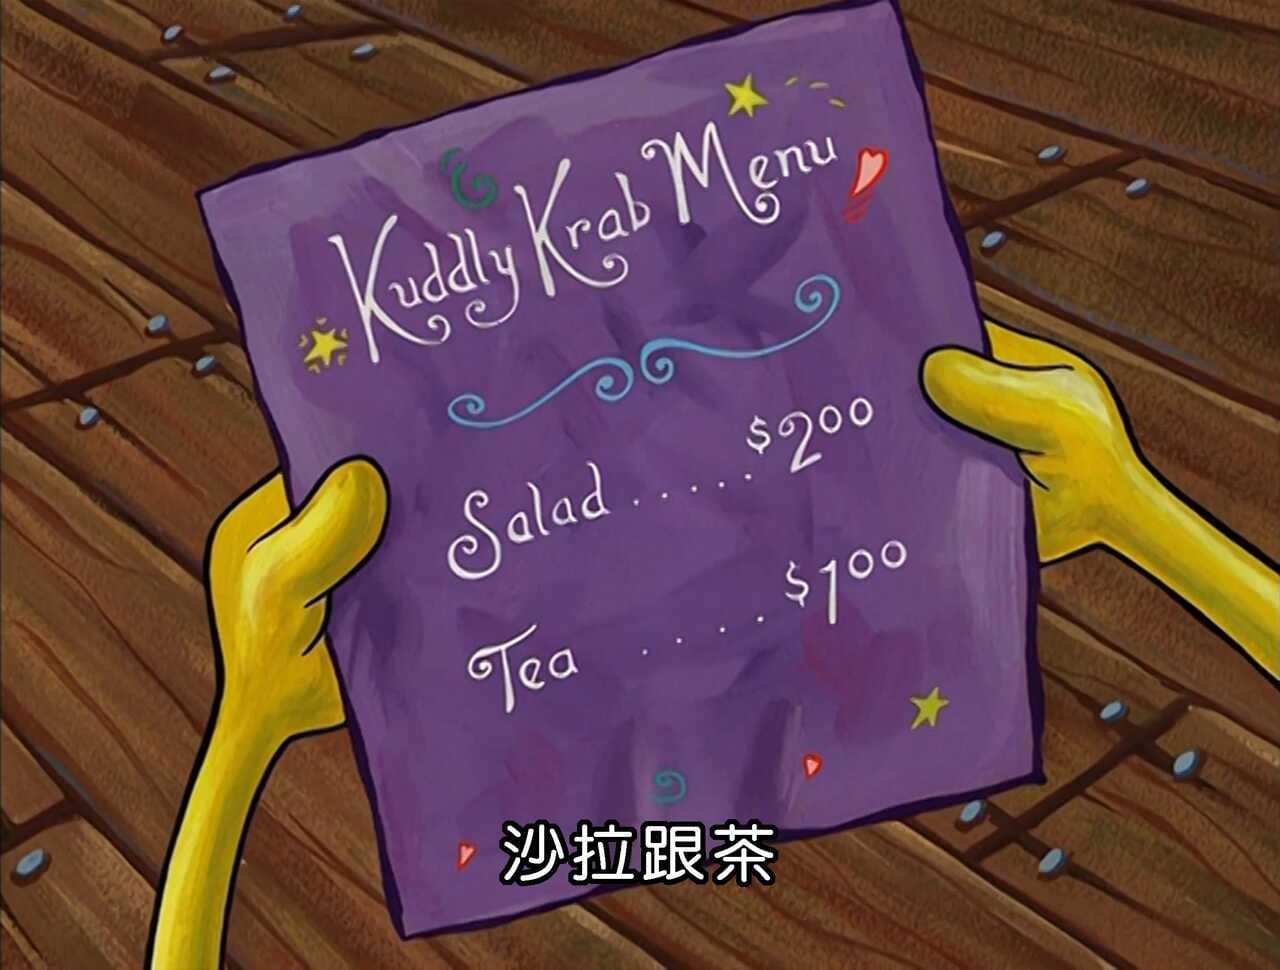 Kuddly Krab Menu
Salad ..... $2.00
Tea .... $1.00
沙拉跟茶